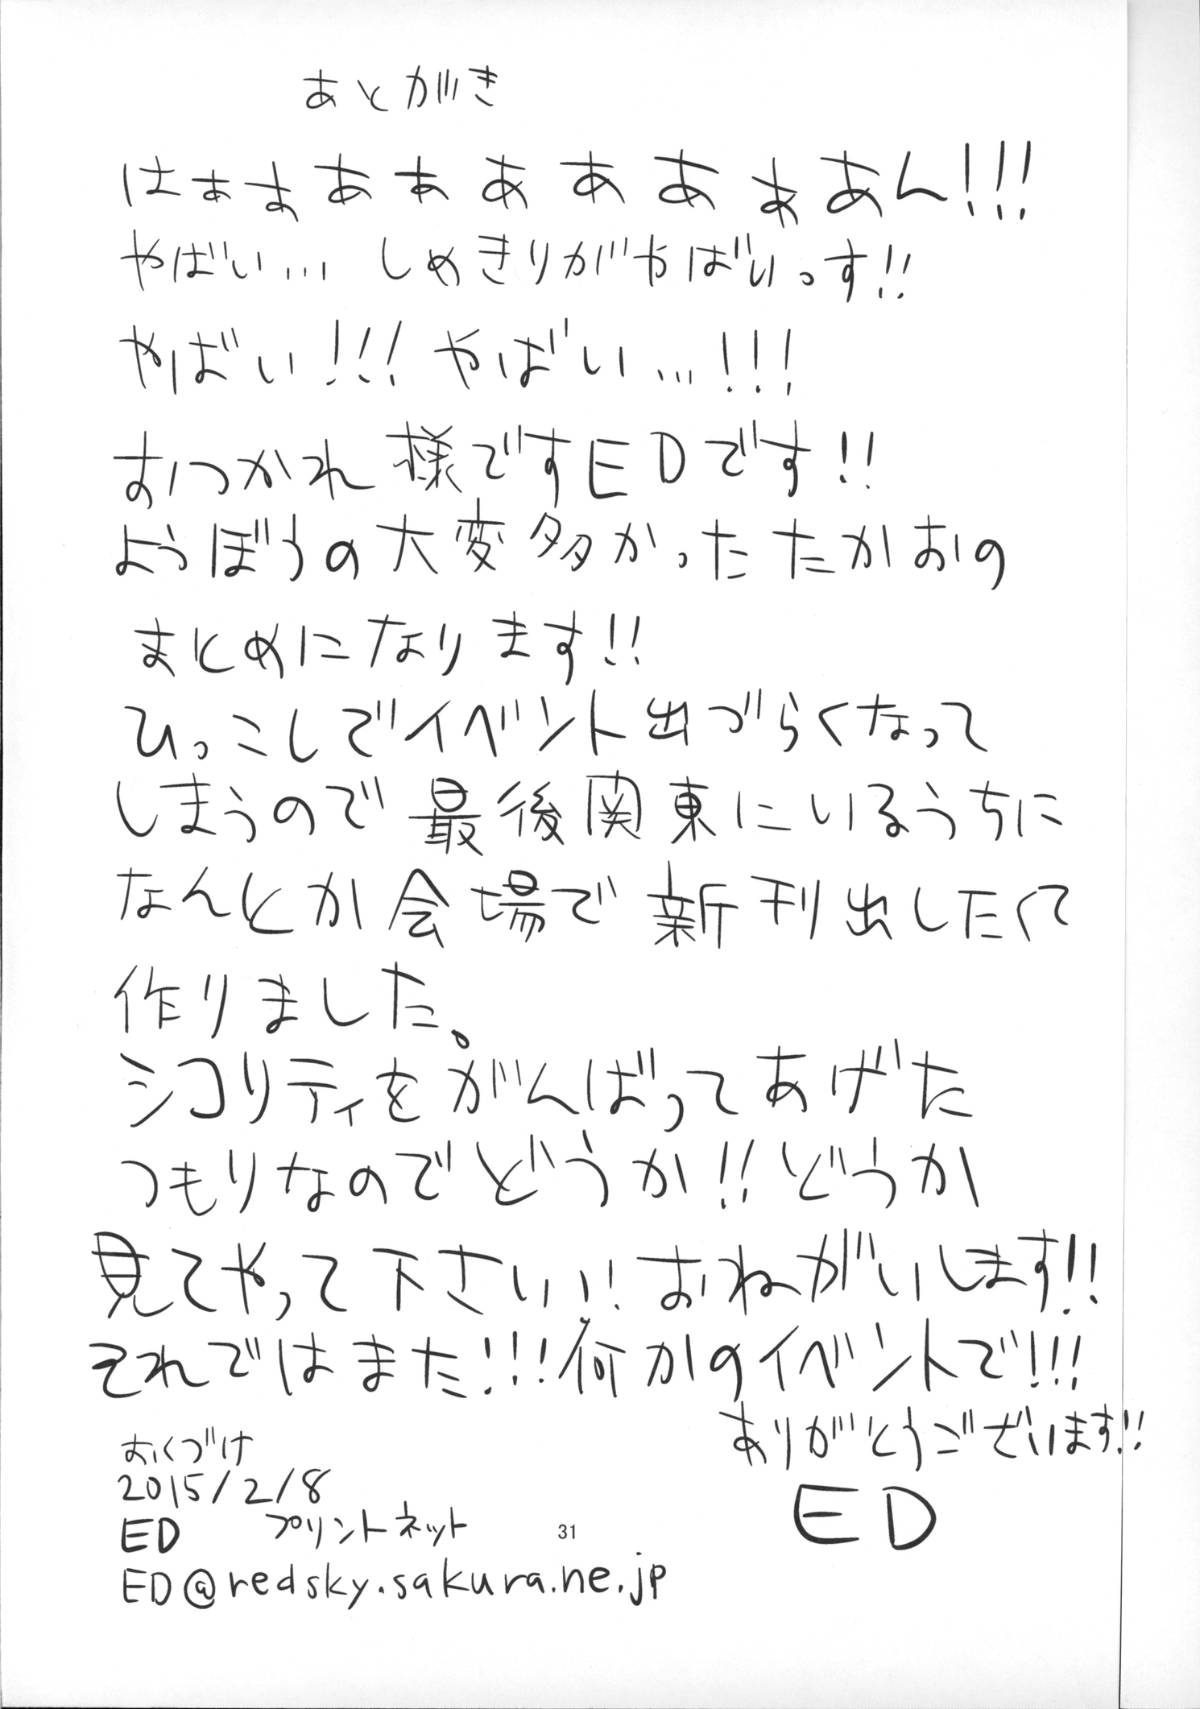 あとがき
はぁぁあぁぁああぁあん!!!
やばい… しめきりがやばいっす!!
やばい!!! やばい…!!!
おつかれ様ですEDです!!
ようぼうの大変多かったたかおの
まとめになります!!
ひっこしでイベント出づらくなって
しまうので最後関東にいるうちに
なんとか会場で新刊出したくて
作りました。
シコリティをがんばってあげた
つもりなのでどうか!!どうか
見てやって下さいい!おねがいします!!
それではまた!!!何かのイベントで!!!
ありがとうございます!!
ED
おくづけ
2015/2/8
ED プリントネット
ED@redsky.sakura.ne.jp
31